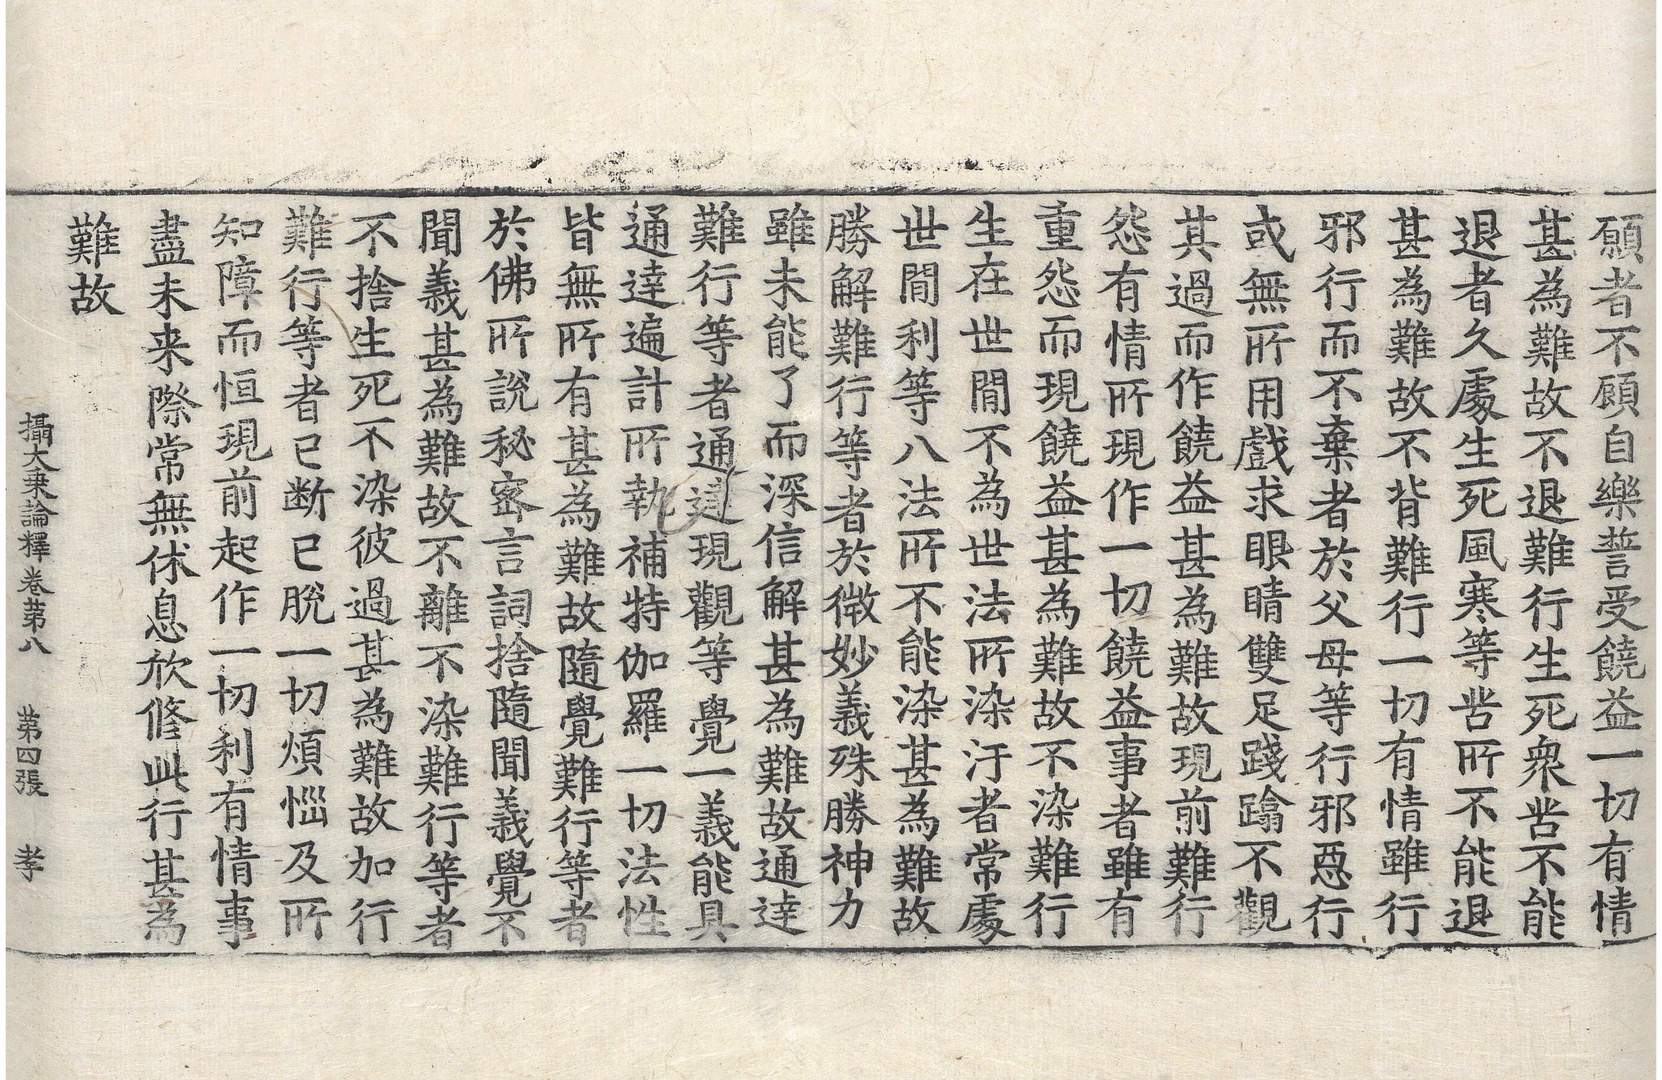 願者不願自樂誓受饒益一切有情
甚為難故不退難行生死衆苦不能
退者久處生死風寒等苦所不能退
甚為難故不背難行一切有情雖行
邪行而不棄者於父母等行邪惡行
或無所用戲求眼睛雙足踐蹹不觀
其過而作饒益甚為難故現前難行
怨有情所現作一切饒益事者雖有
重怨而現饒益甚為難故不染難行
生在世間不為世法所染汙者常處
世間利等八法所不能染甚為難故
勝解難行等者於微妙義殊勝神力
雖未能了而深信解甚為難故通達
難行等者通達現觀等覺一義能具
通達遍計所執補特伽羅一切法性
皆無所有甚為難故隨覺難行等者
於佛所說秘密言詞捨隨聞義覺不
聞義甚為難故不離不染難行等者
不捨生死不染彼過甚為難故加行
難行等者已断已脫一切煩惱及所
知障而恒現前起作一切利有情事
盡未来際常無休息欣修此行甚為
難故
攝大乗論釋卷苐八　苐四張　孝